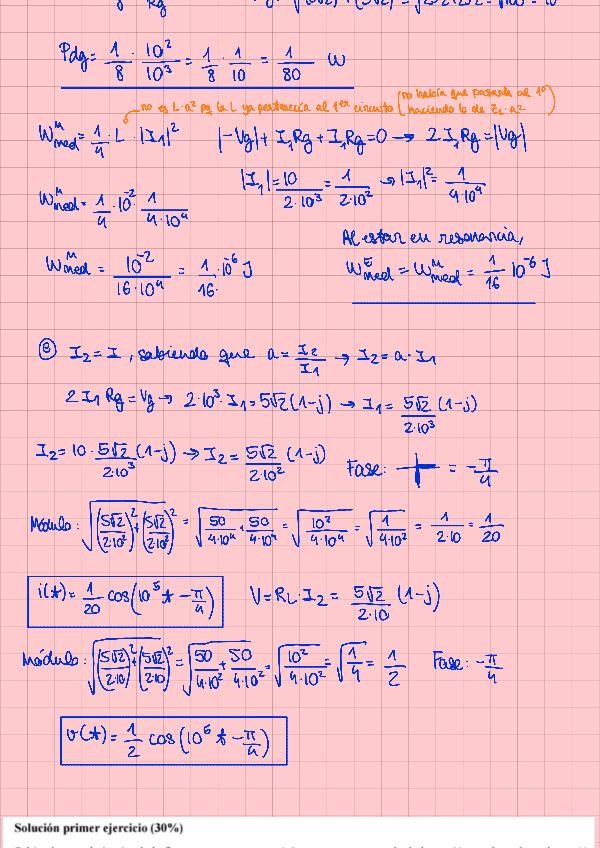 Pdg = 1/8 · 10²/10³ = 1/8 · 1/10 = 1/80 W
no es L·a² pq la L ya pertenecía al 1er circuito (no había que pasarla al 1º haciendo lo de ZL·a²)
W^M_med = 1/4 · L · |I1|² |-Vg| + I1Rg + I1Rg = 0 → 2I1Rg = |Vg|
|I1| = 10/(2·10³) = 1/(2·10²) → |I1|² = 1/(4·10⁴)
W^M_med = 1/4 · 10⁻² · 1/(4·10⁴)
Al estar en resonancia,
W^M_med = 10⁻²/(16·10⁴) = 1/16 · 10⁻⁶ J W^E_med = W^M_med = 1/16 10⁻⁶ J
I2 = I, sabiendo que a = I2/I1 → I2 = a·I1
2I1Rg = Vg → 2·10³·I1 = 5√2(1-j) → I1 = 5√2/(2·10³) (1-j)
I2 = 10 · 5√2/(2·10³) (1-j) → I2 = 5√2/(2·10²) (1-j) Fase: = -π/4
Módulo: √((5√2/(2·10²))² + (5√2/(2·10²))²) = √(50/(4·10⁴) + 50/(4·10⁴)) = √(10²/(4·10⁴)) = √(1/(4·10²)) = 1/(2·10) = 1/20
i(t) = 1/20 cos(10⁵t - π/4) V = RL·I2 = 5√2/(2·10) (1-j)
Módulo: √((5√2/(2·10))² + (5√2/(2·10))²) = √(50/(4·10²) + 50/(4·10²)) = √(10²/(4·10²)) = √(1/4) = 1/2 Fase: -π/4
v(t) = 1/2 cos(10⁵t - π/4)
Solución primer ejercicio (30%)